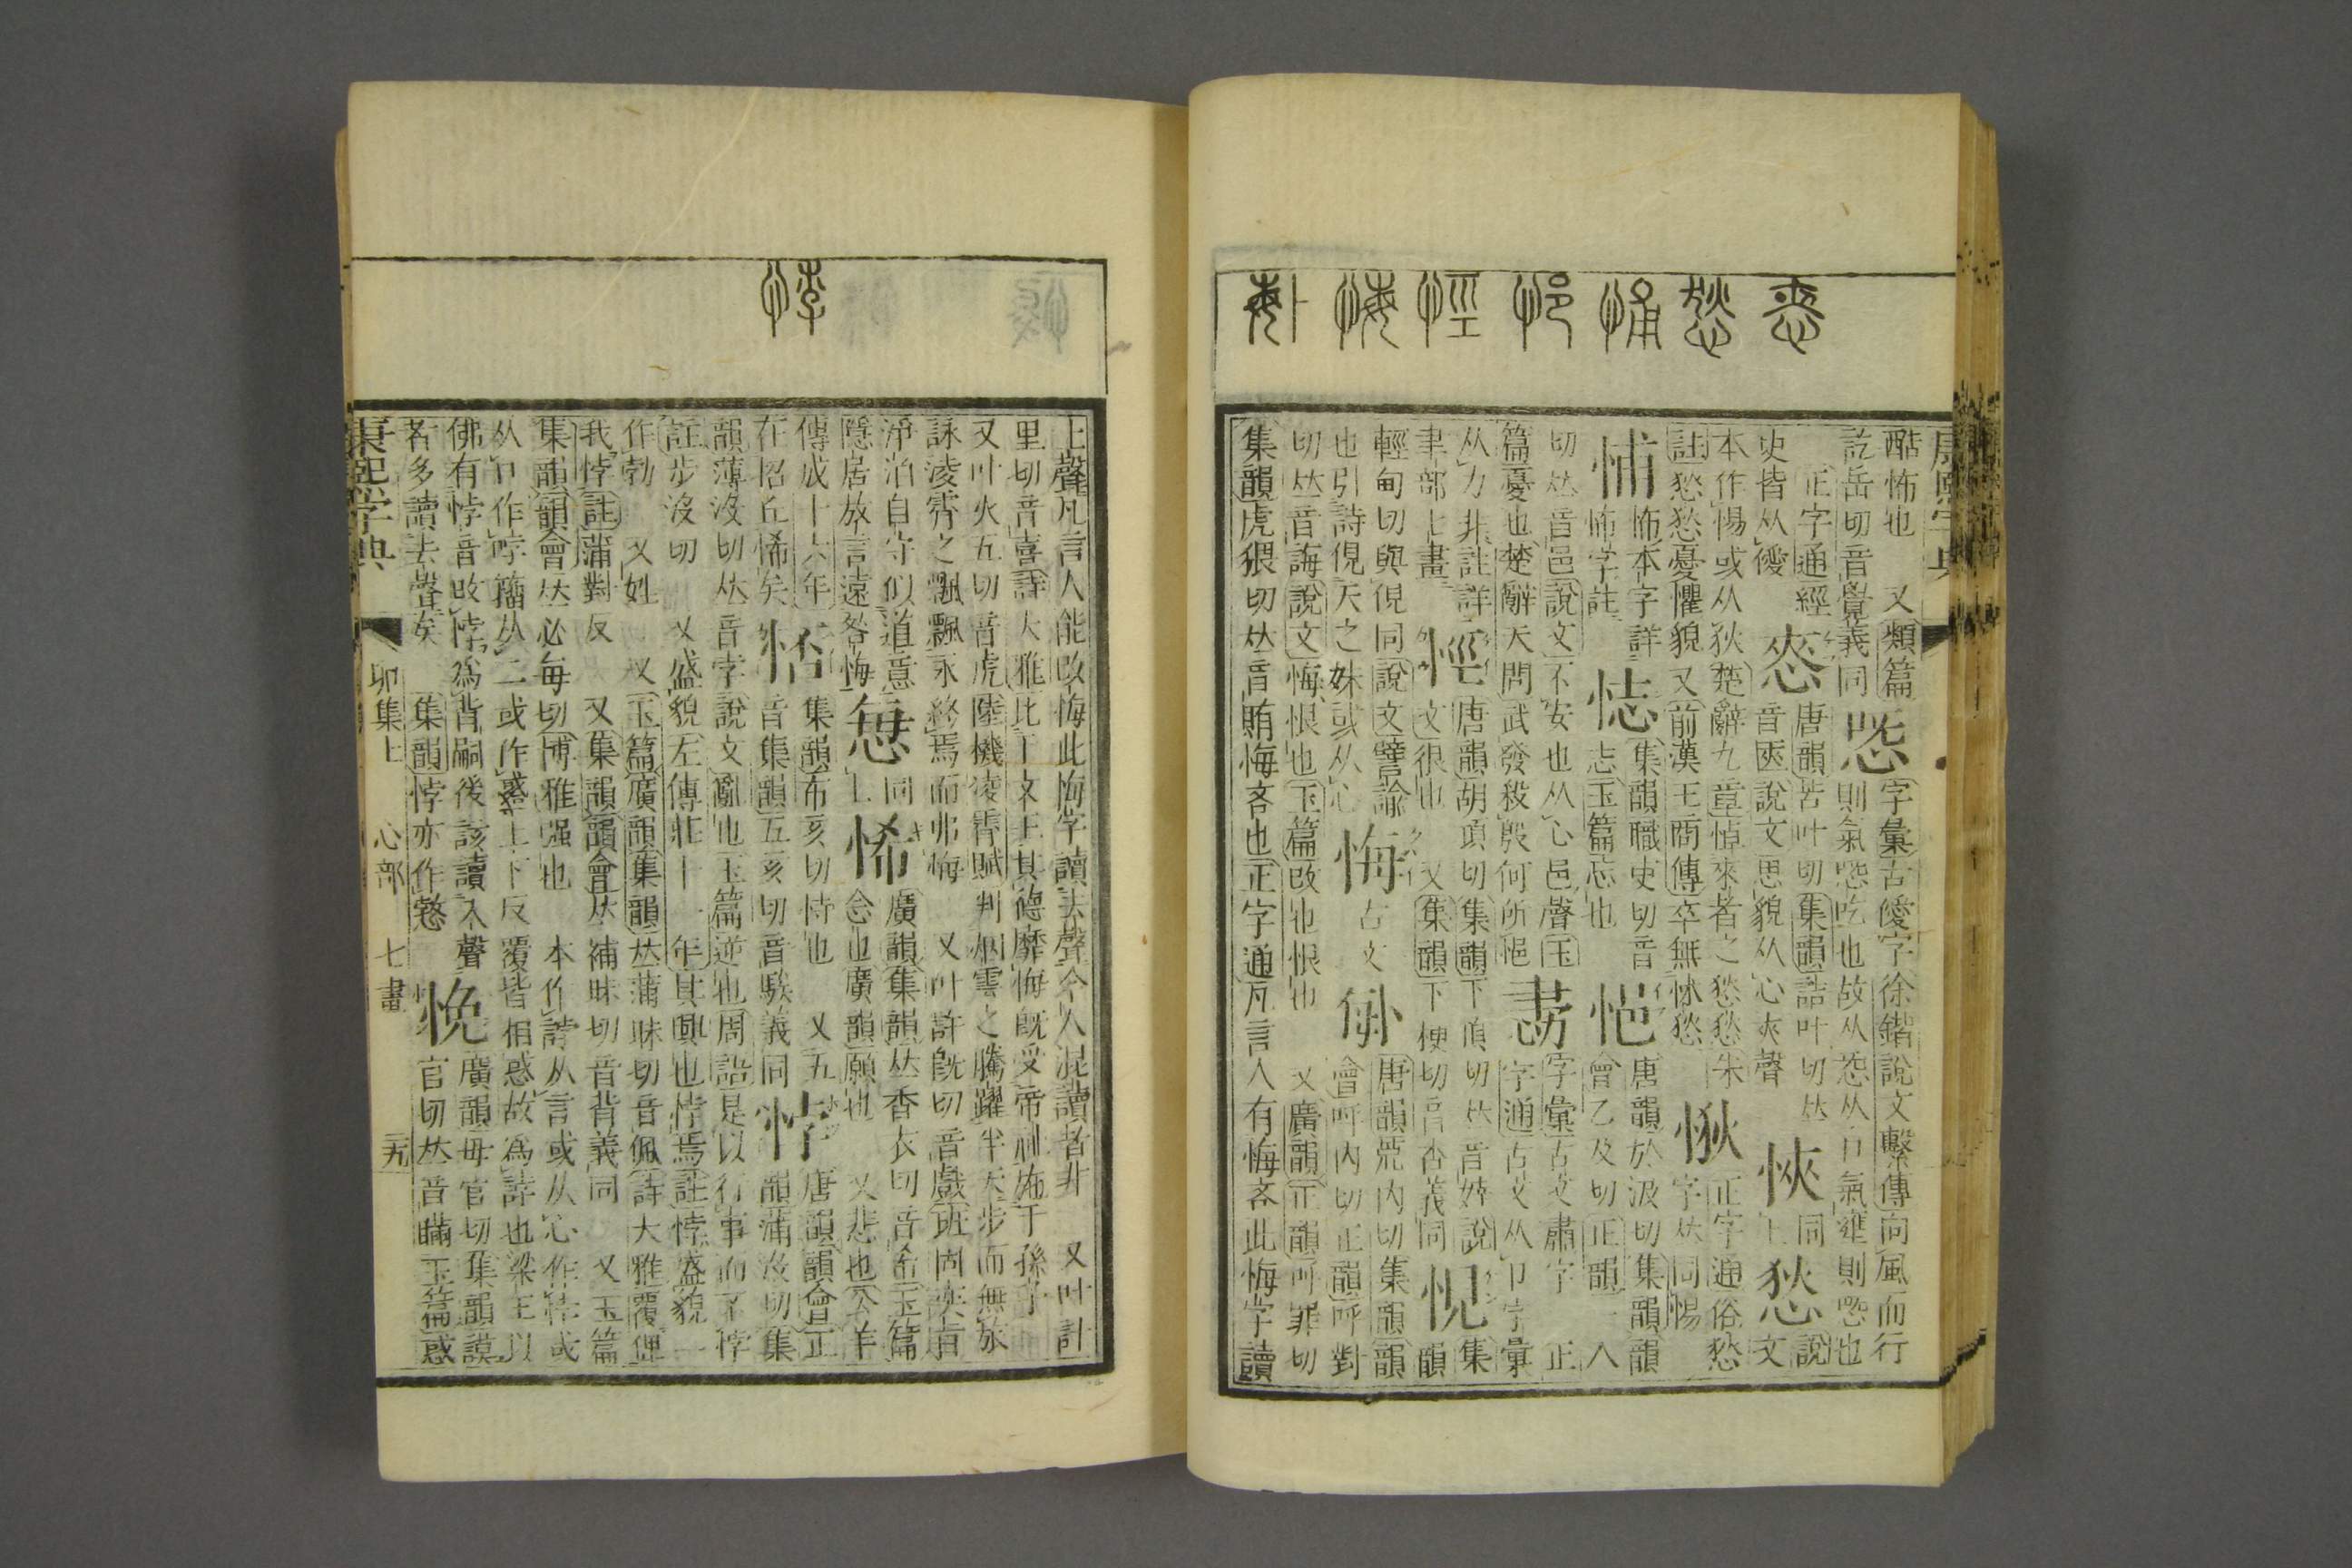 酷怖也 又類篇
訖岳切音覺義同 㤅 字彙古僾字徐鍇說文繫傳向風而行
則氣㤅吃也故从㤅从旡氣壅則㤅也
正字通經
史皆从僾 㤲 唐韻苦叶切集韻詰叶切𠀤
音匧說文思貌从心夾聲 悏 同上 悐 說文
本作惕或从狄楚辭九章悼來者之悐悐朱
註悐悐憂懼貌又前漢王商傳卒無怵悐 愀 正字通俗愁
字𠀤同惕
悑 怖本字詳
怖字註 𢘽 集韻職吏切音
志玉篇忘也 悒 唐韻於汲切集韻韻
會乙及切正韻一入
切𠀤音邑說文不安也从心邑聲玉
篇憂也楚辭天問武發殺殷何所悒 字彙古文肅字 正
字通古文从卩字彙
从力非註詳
聿部七畫 悙 唐韻胡頂切集韻下頂切𠀤音婞說
文很也 又集韻下梗切音杏義同 悓 集
韻
輕甸切與俔同說文譬諭
也引詩俔天之妹或从心 悔 古文 𠧩 唐韻荒內切集韻韻
會呼內切正韻呼對
切𠀤音誨說文悔恨也玉篇改也恨也 又廣韻正韻呼罪切
集韻虎猥切𠀤音賄悔吝也正字通凡言人有悔吝此悔字讀
上聲凡言人能改悔此悔字讀去聲今人混讀者非 又叶計
里切音喜詩大雅比于文王其德靡悔旣受帝祉施于孫子
又叶火五切音虎陸機凌霄賦判烟雲之騰躍半天步而無旅
詠凌霄之飄飄永終焉而弗悔 又叶許旣切音戲班固夾旨
淨泊自守似道意
隱居放言遠咎悔 𢘓 同上 悕 廣韻集韻𠀤香衣切音希玉篇
念也廣韻願也 又悲也公羊
傳成十六年
在招丘悕矣 㤳 集韻布亥切恃也 又五
音集韻五亥切音騃義同 悖 唐韻韻會正
韻蒲沒切集
韻薄沒切𠀤音孛說文亂也玉篇逆也周語是以行事而不悖
註步沒切 又盛貌左傳莊十一年其興也悖焉註悖盛貌一
作勃 又姓 又玉篇廣韻集韻𠀤蒲昧切音佩詩大雅覆俾
我悖註蒲對反 又集韻韻會𠀤補昧切音背義同 又玉篇
集韻韻會𠀤必每切博雅强也 本作誖从言或从心作悖或
从口作哱籀从二或作㦄上下反覆皆相惑故為誖也梁王以
佛有悖音改悖為背嗣後該讀入聲
者多讀去聲矣 集韻悖亦作愂 悗 廣韻毋官切集韻謨
官切𠀤音瞞玉篇惑
康熙字典 卯集上 心部 七畫 二九
康熙字典